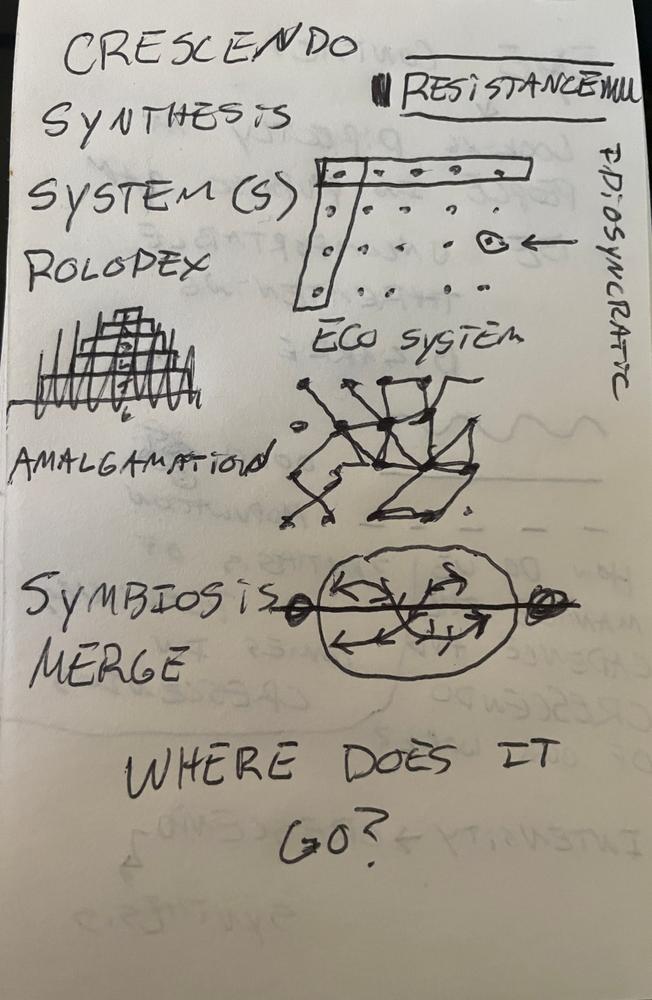 CRESCENDO
SYNTHESIS
RESISTANCE
SYSTEM(S)
ROLODEX
IDIOSYNCRATIC
ECO SYSTEM
AMALGAMATION
SYMBIOSIS
MERGE
WHERE DOES IT
GO?